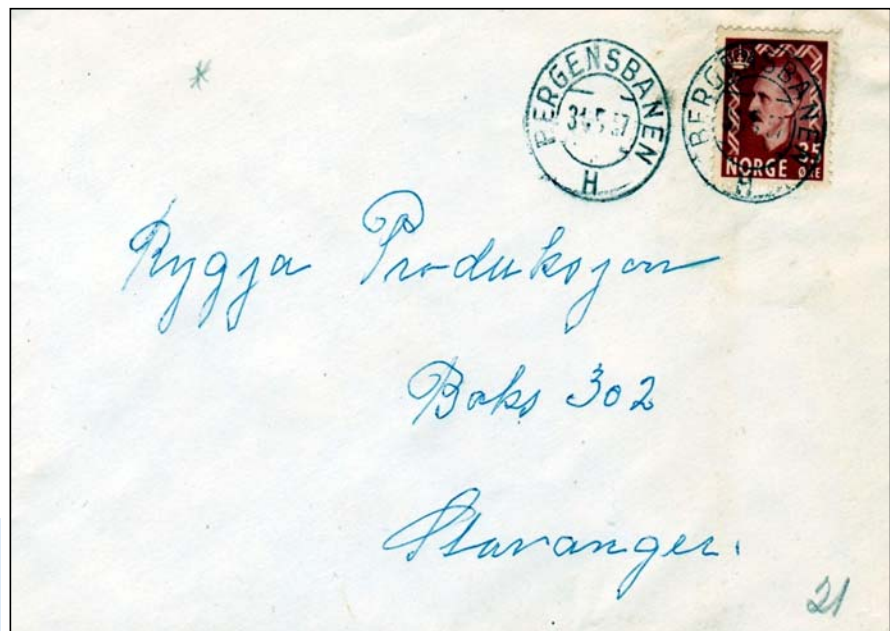 BERGENSBANEN
31.5.57
H
BERGENSBANEN
H
NORGE
35
ØRE
Rygja Produksjon
Boks 302
Stavanger.
21